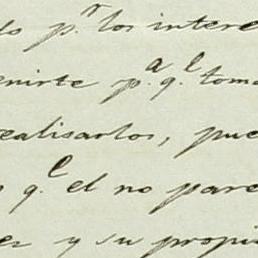 do p.r los intere
enirte p.a q.e toma
realisarlos, pue
s q.e el no pare
er y su propi